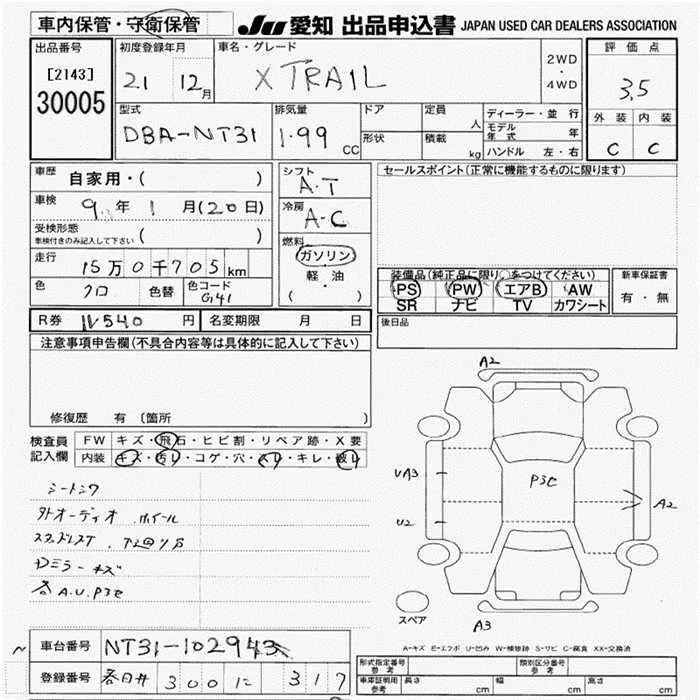 車内保管・守衛保管
JU 愛知 出品申込書 JAPAN USED CAR DEALERS ASSOCIATION
出品番号 初度登録年月 車名・グレード 評価点
[2143] 21 12月 X TRAIL 2WD・4WD 3.5
30005
型式 排気量 ドア 定員 人 ディーラー・並行 外装 内装
DBA-NT31 1.99 CC 形状 積載 kg モデル年式 年 C C
ハンドル 左・右
車歴 自家用・( ) シフト A.T セールスポイント(正常に機能するものに限ります)
車検 9年1月(20日) 冷房 A-C
受検形態
車検付きのみ記入して下さい ( ) 燃料
走行 15万0千705km ガソリン 装備品(純正品に限り○をつけてください) 新車保証書
色 クロ 色替 色コード G41 軽・油 PS PW エアB AW 有・無
( ・ ) SR ナビ TV カワシート
R券 11540円 名変期限 月 日 後日品
注意事項申告欄(不具合内容等は具体的に記入して下さい)
修復歴 有 〔箇所 〕
検査員 FW キズ・飛石・ヒビ割・リペア跡・X要
記入欄 内装 キズ・汚レ・コゲ・穴・スレ・キレ・破レ
シートシワ
外オーディオ.ホイール
スタッドレスT.下廻りサビ
ドミラーキズ
各A.U.P3C
A2
UA3
P3C
U2
A2
A3
スペア
A-キズ E-エクボ U-凹み W-補修跡 S-サビ C-腐食 XX-交換済
車台番号 NT31-102943
登録番号 春日井 300 に 317
形式指定番号 参考 類別区分番号 参考
車庫証明用 参考 長さ cm 幅 cm 高さ cm